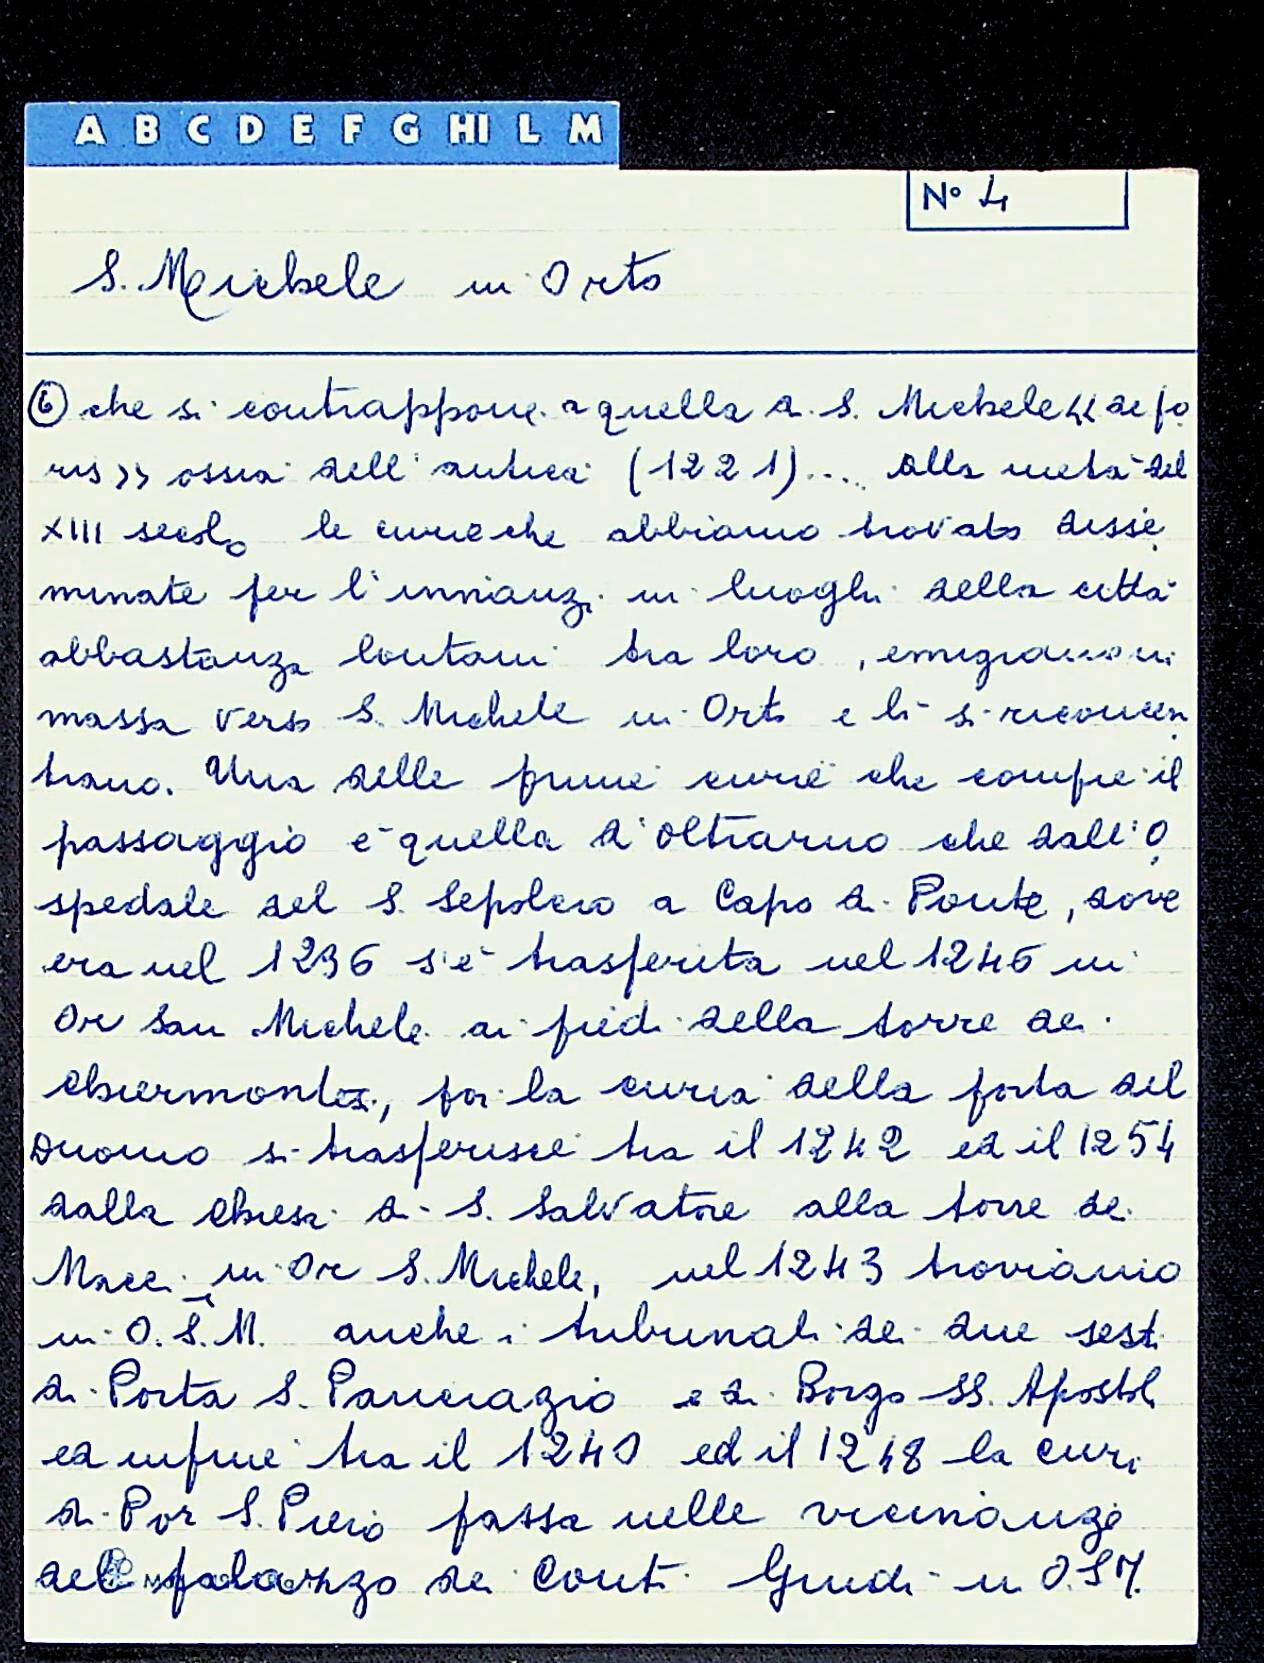 A B C D E F G HI L M
N° 4
S. Michele in Orto
⑥ che si contrappone a quella di S. Michele « de fo
ris » ossia dell'antica (1221).... alla metà del
XIII secolo le curie che abbiamo trovato disse
minate per l'innanzi in luoghi della città
abbastanza lontani tra loro, emigrano in
massa verso S. Michele in Orto e lì si riconcen
trano. Una delle prime curie che compie il
passaggio è quella d'Oltrarno che dall'O
spedale del S. Sepolcro a Capo di Ponte, dove
era nel 1236 s'è trasferita nel 1246 in
Or San Michele ai piedi della torre dei
Chiermontesi, poi la curia della porta del
Duomo si trasferisce tra il 1242 ed il 1254
dalla chiesa di S. Salvatore alla torre dei
Macci in Or S. Michele, nel 1243 troviamo
in O.S.M. anche i tribunali dei due sesti
di Porta S. Pancrazio e di Borgo SS. Apostoli
ed infine tra il 1240 ed il 1248 la curi
di Por S. Piero passa nelle vicinanze
del palazzo dei Conti Guidi in O.S.M.